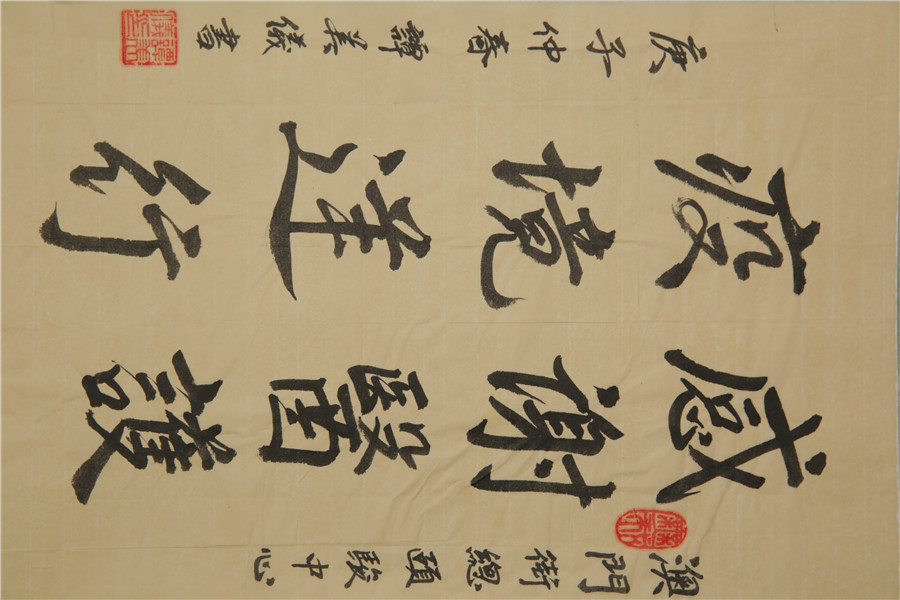 澳門街總頤駿中心
感謝醫護
疫境逆行
庚子仲春譚美儀書